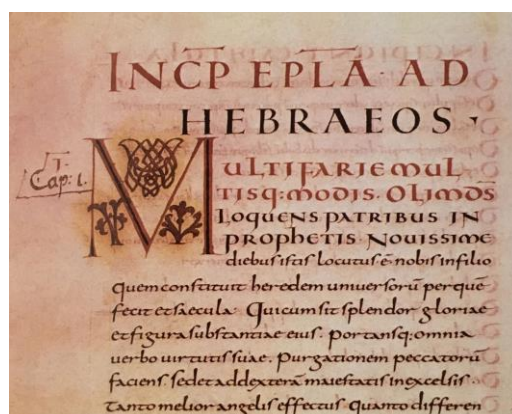 INCP EPLA · AD
HEBRAEOS ·
Cap: 1.
MULTIFARIE MUL
TISQ: MODIS · OLIM DS
LOQUENS PATRIBUS IN
PROPHETIS NOUISSIME
diebus istis locutus ē nobis in filio
Quem constituit heredem uniuersorū per quē
fecit et saecula · Qui cum sit splendor gloriae
et figura substantiae eius · portansq; omnia
uerbo uirtutis suae · Purgationem peccatorū
faciens · sedet ad dexterā maiestatis in excelsis ·
Tanto melior angelis effectus · Quanto differen